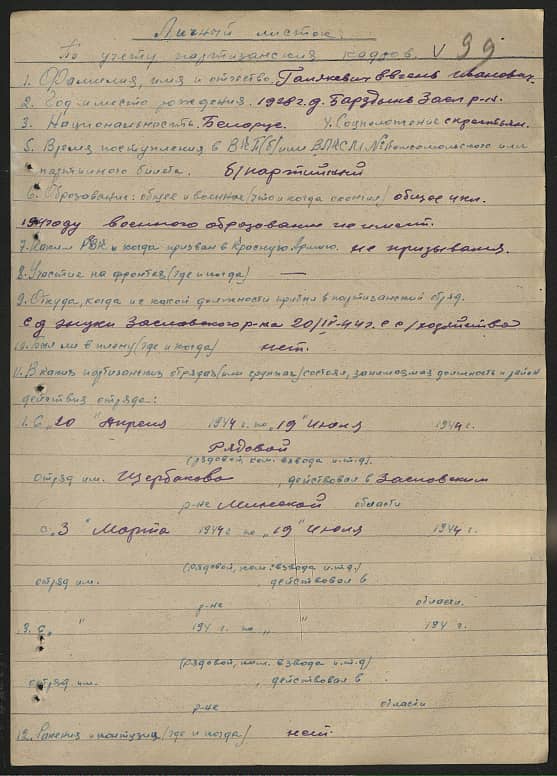 Личный листок.
По учету партизанских кадров. V 99
1. Фамилия, имя и отчество. Иванович.
2. Год и место рождения. 1928 г. д. Засл. р-н.
3. Национальность. Белорус. 4. Соцположение с крестьян.
5. Время поступления в ВКП(б) или ВЛКСМ № комсомольского или
партийного билета. б/партийный
6. Образование: общее и военное (что и когда окончил) общее 4 кл.
1941 году военного образования не имеет.
7. Каким РВК и когда призван в Красную Армию. не призывался.
8. Участие на фронтах (где и когда) —
9. Откуда, когда и с какой должности прибыл в партизанский отряд.
с д. Заславского р-на 20/IV-44 г. с с/хозяйства
10. Был ли в плену (где и когда) нет.
11. В каких партизанских отрядах (или группах) состоял, занимаемая должность и район
действия отряда:
1. С „20" Апреля 1944 г. по „19" Июня 1944 г.
Рядовой
(рядовой, ком. взвода и.т.д).
отряд им. Щербакова , действовал в Засловским
р-не Минской области
с „3" Марта 1944 г по „19" Июля 1944 г.
(рядовой, ком. взвода и.т.д.)
отряд им. , действовал в
р-не области.
3. С „ " 194 г. по „ " 194 г.
(рядовой, ком. взвода и.т.д)
отряд им. , действовал в
р-не области
12. Ранения и контузии (где и когда) нет.